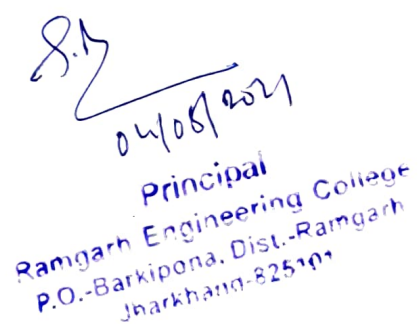 04/08/2021
Principal
Ramgarh Engineering College
P.O.-Barkipona, Dist.-Ramgarh
Jharkhand-825101